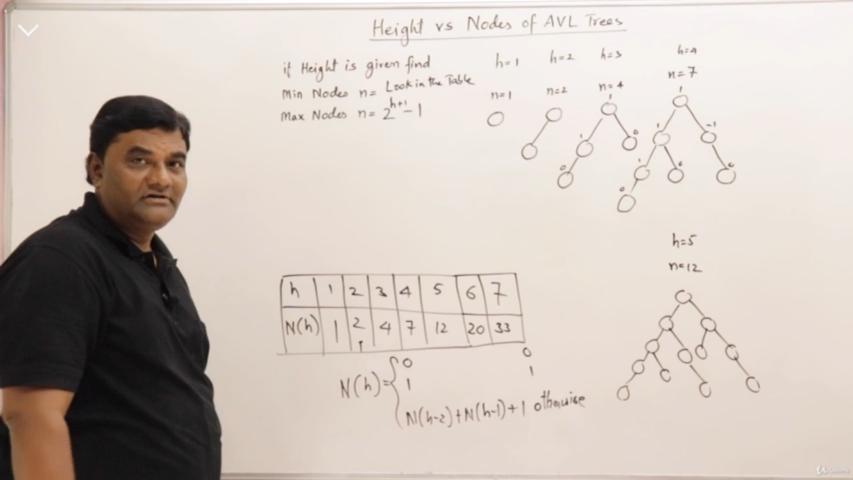 Height vs Nodes of AVL Trees
if Height is given find
Min Nodes n= Look in the Table
Max Nodes n= 2^h+1 -1
h=1 h=2 h=3 h=4
n=1 n=2 n=4 n=7
1 1 1 -1 0
0 1 0 0
0
h=5
n=12
h 1 2 3 4 5 6 7
N(h) 1 2 4 7 12 20 33
N(h)= { 0 0
1 1
N(h-2)+N(h-1)+1 otherwise